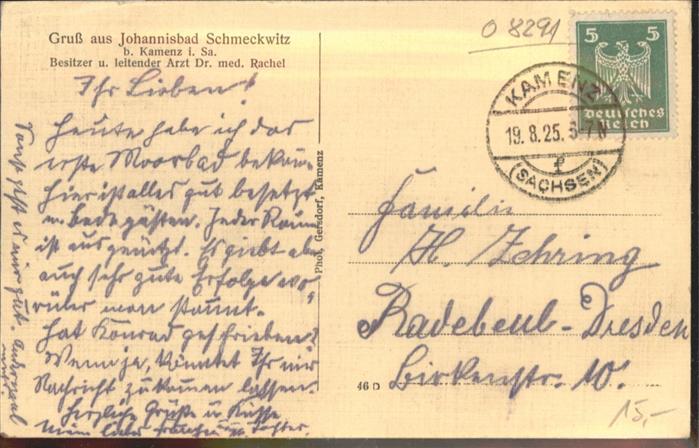 Gruß aus Johannisbad Schmeckwitz
b. Kamenz i. Sa.
Besitzer u. leitender Arzt Dr. med. Rachel
Ihr Lieben!
Heute habe ich das
erste Moorbad bekom-
Hier ist alles gut besetzt
m. Badegästen. Jeder Raum
ist ausgenützt. Es giebt aber
auch sehr gute Erfolge wo-
rüber man staunt.
Hat Konrad geschrieben?
Wenn ja, könntet Ihr mir
Nachricht zukommen lassen.
Herzliche Grüße u. Küsse
Sonst geht es mir gut.
Phot. Gersdorf, Kamenz
46 D
O 8291
5 5
Deutsches
Reich
KAMENZ
19.8.25. 5-7N
f
(SACHSEN)
Familie
H. Zehring
Radebeul-Dresden
Birkenstr. 10.
15,-